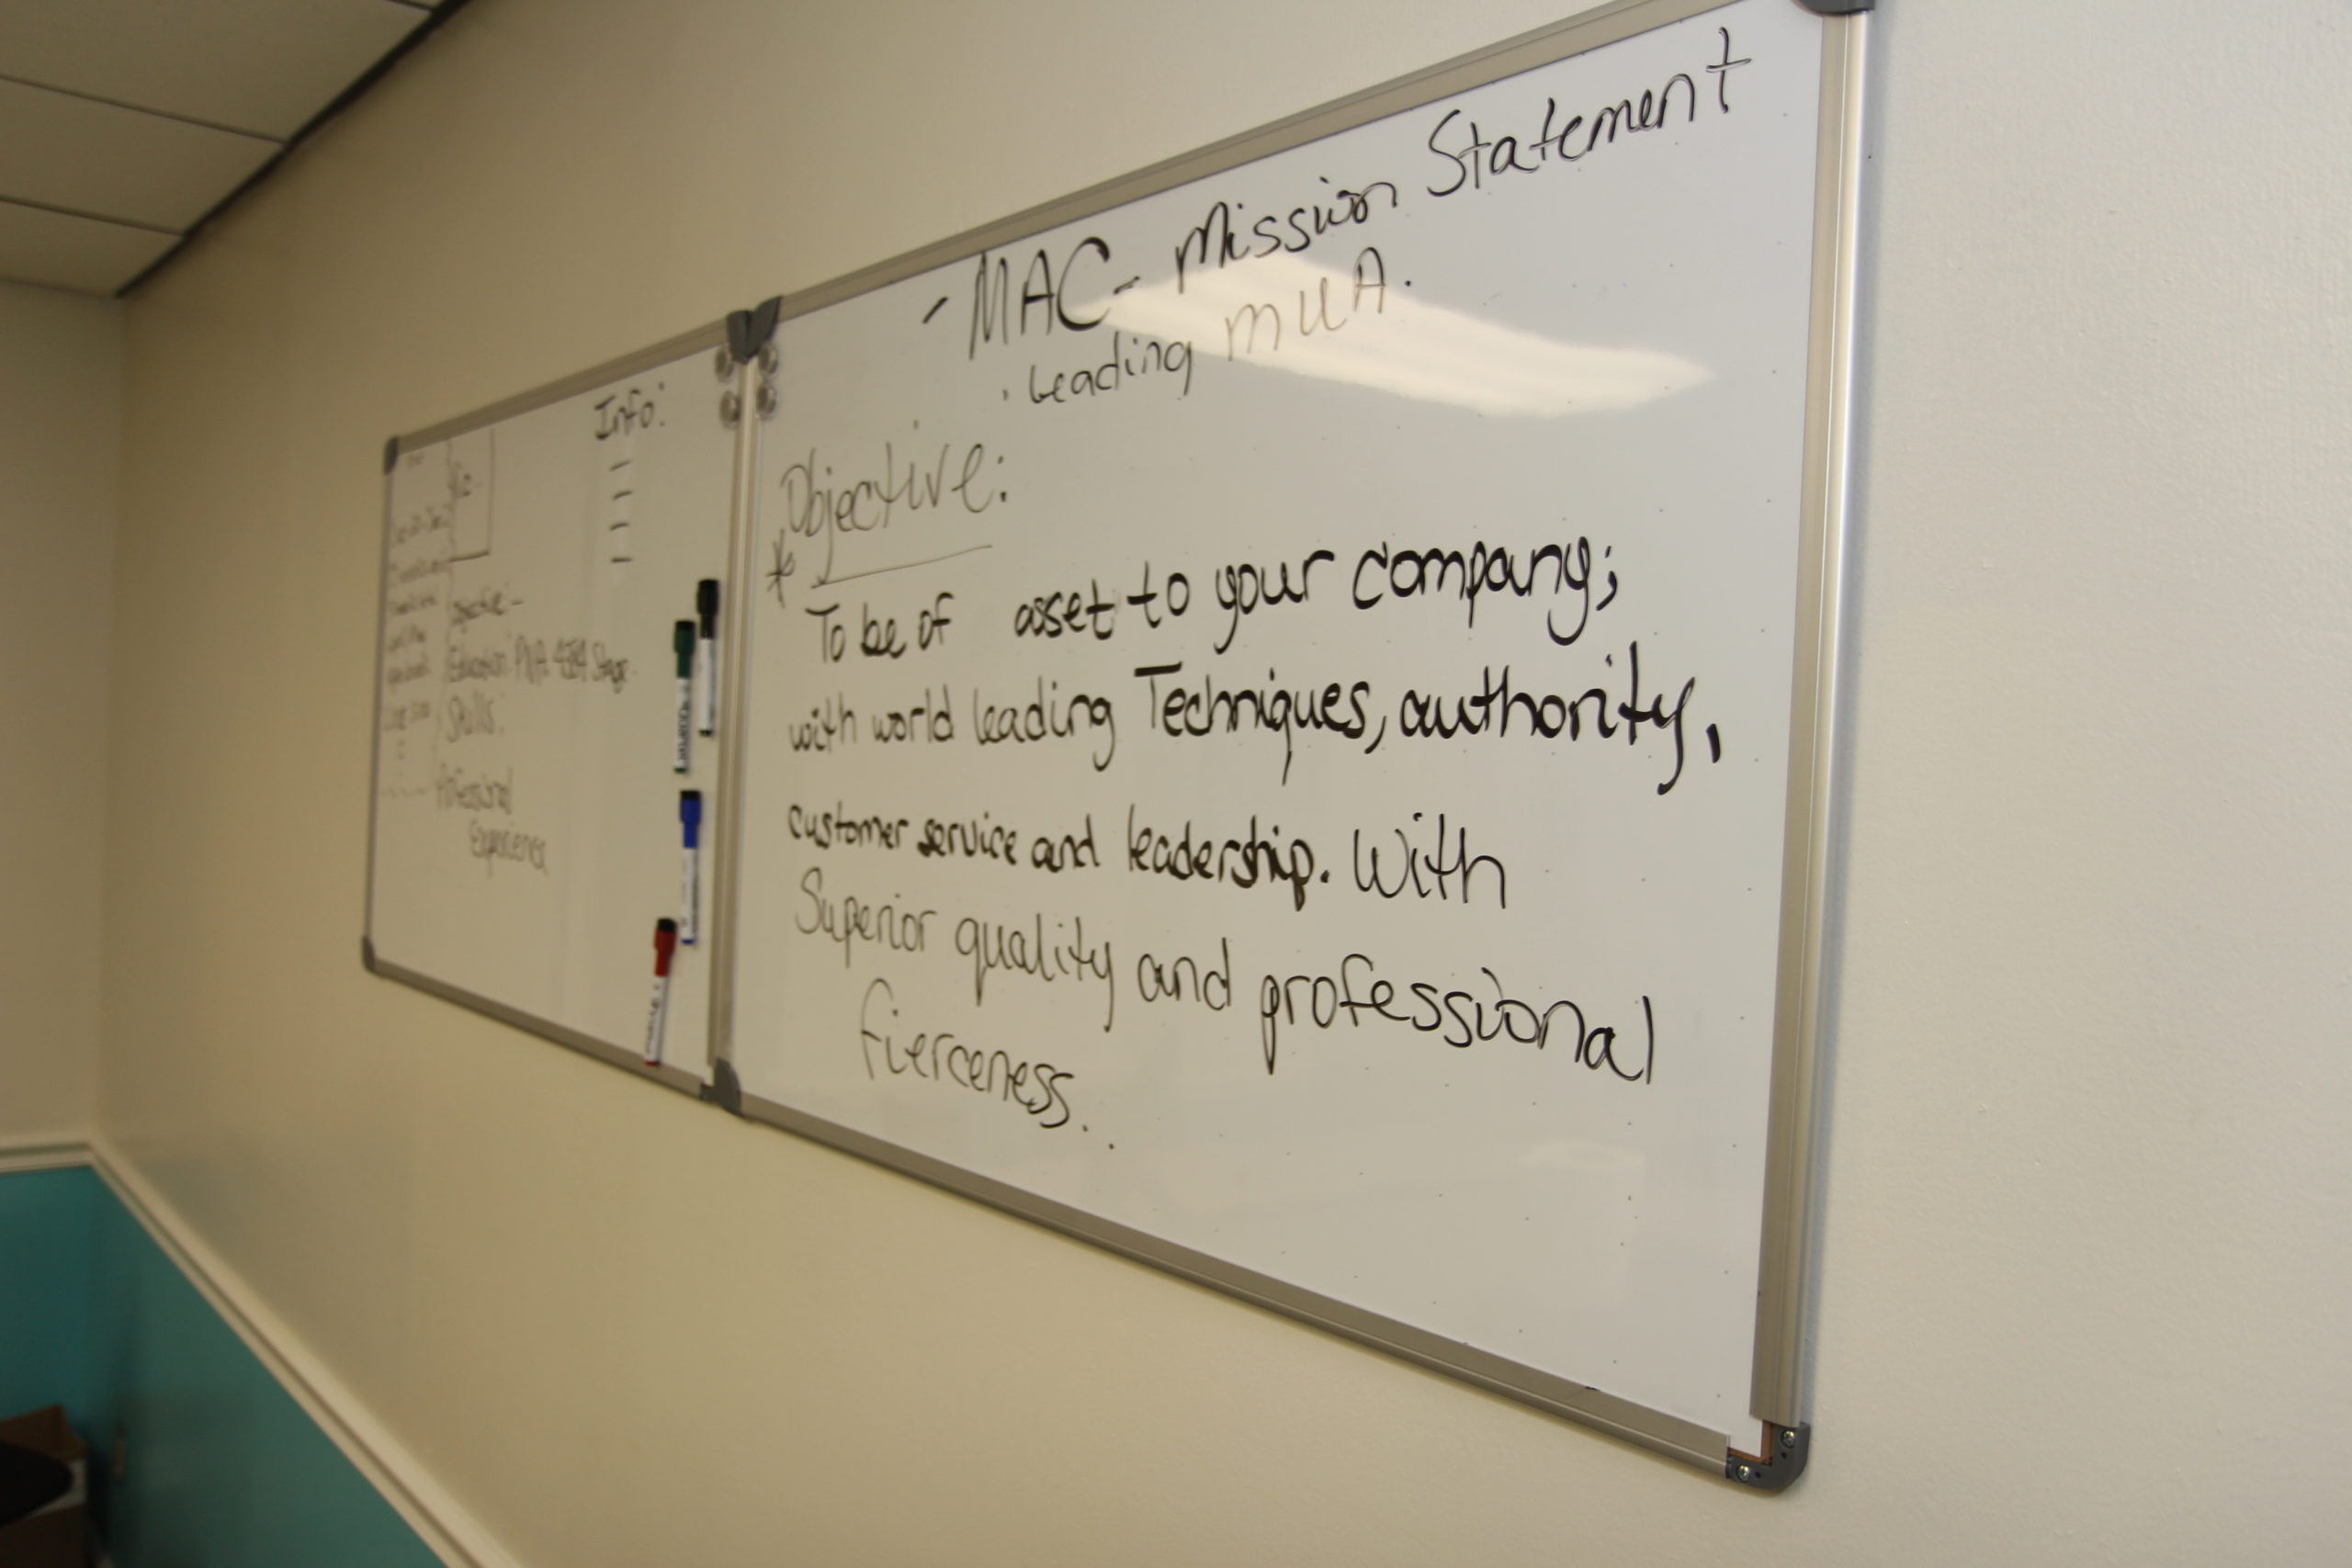 Info:
Objective -
Education: 
Skills:
Professional
Experience
- MAC - Mission Statement
. Leading MUA.
Objective:
* To be of asset to your company;
with world leading Techniques, authority,
customer service and leadership. With
Superior quality and professional
fierceness..